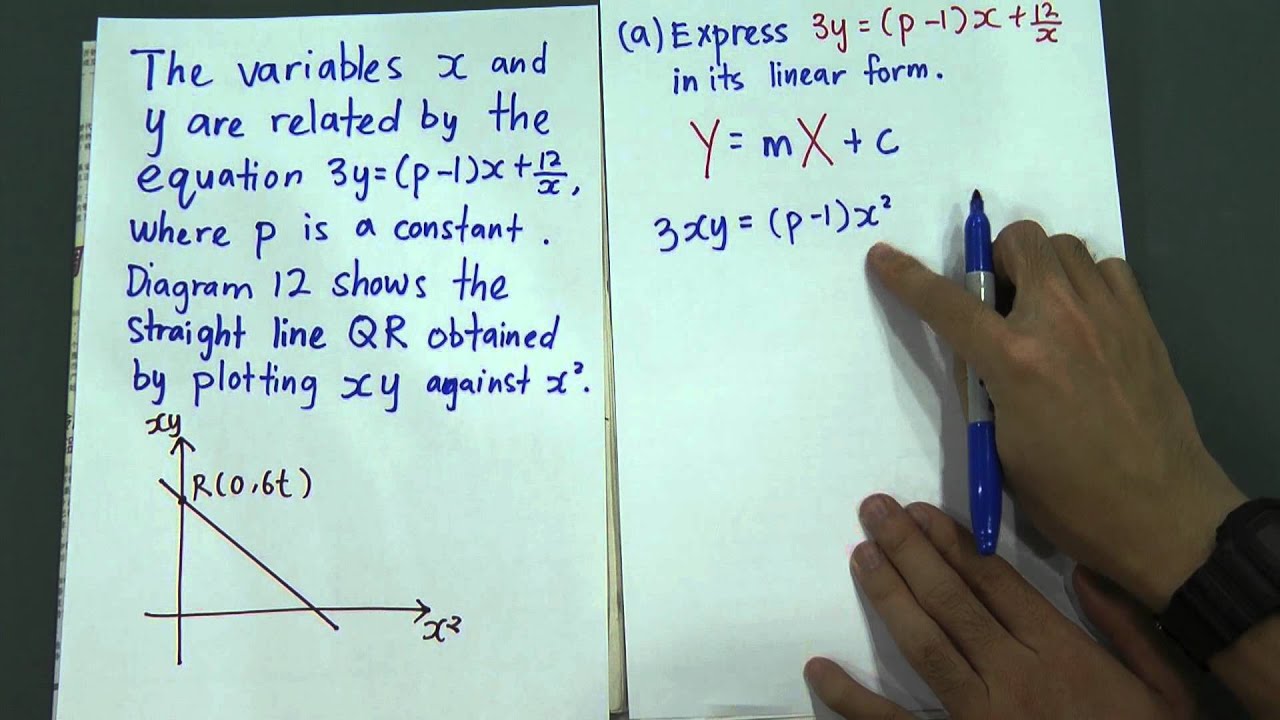 The variables x and
y are related by the
equation 3y=(p-1)x+12/x,
where p is a constant.
Diagram 12 shows the
straight line QR obtained
by plotting xy against x².
xy
R(0,6t)
x²
(a) Express 3y=(p-1)x+12/x
in its linear form.
Y = mX + c
3xy = (p-1)x²